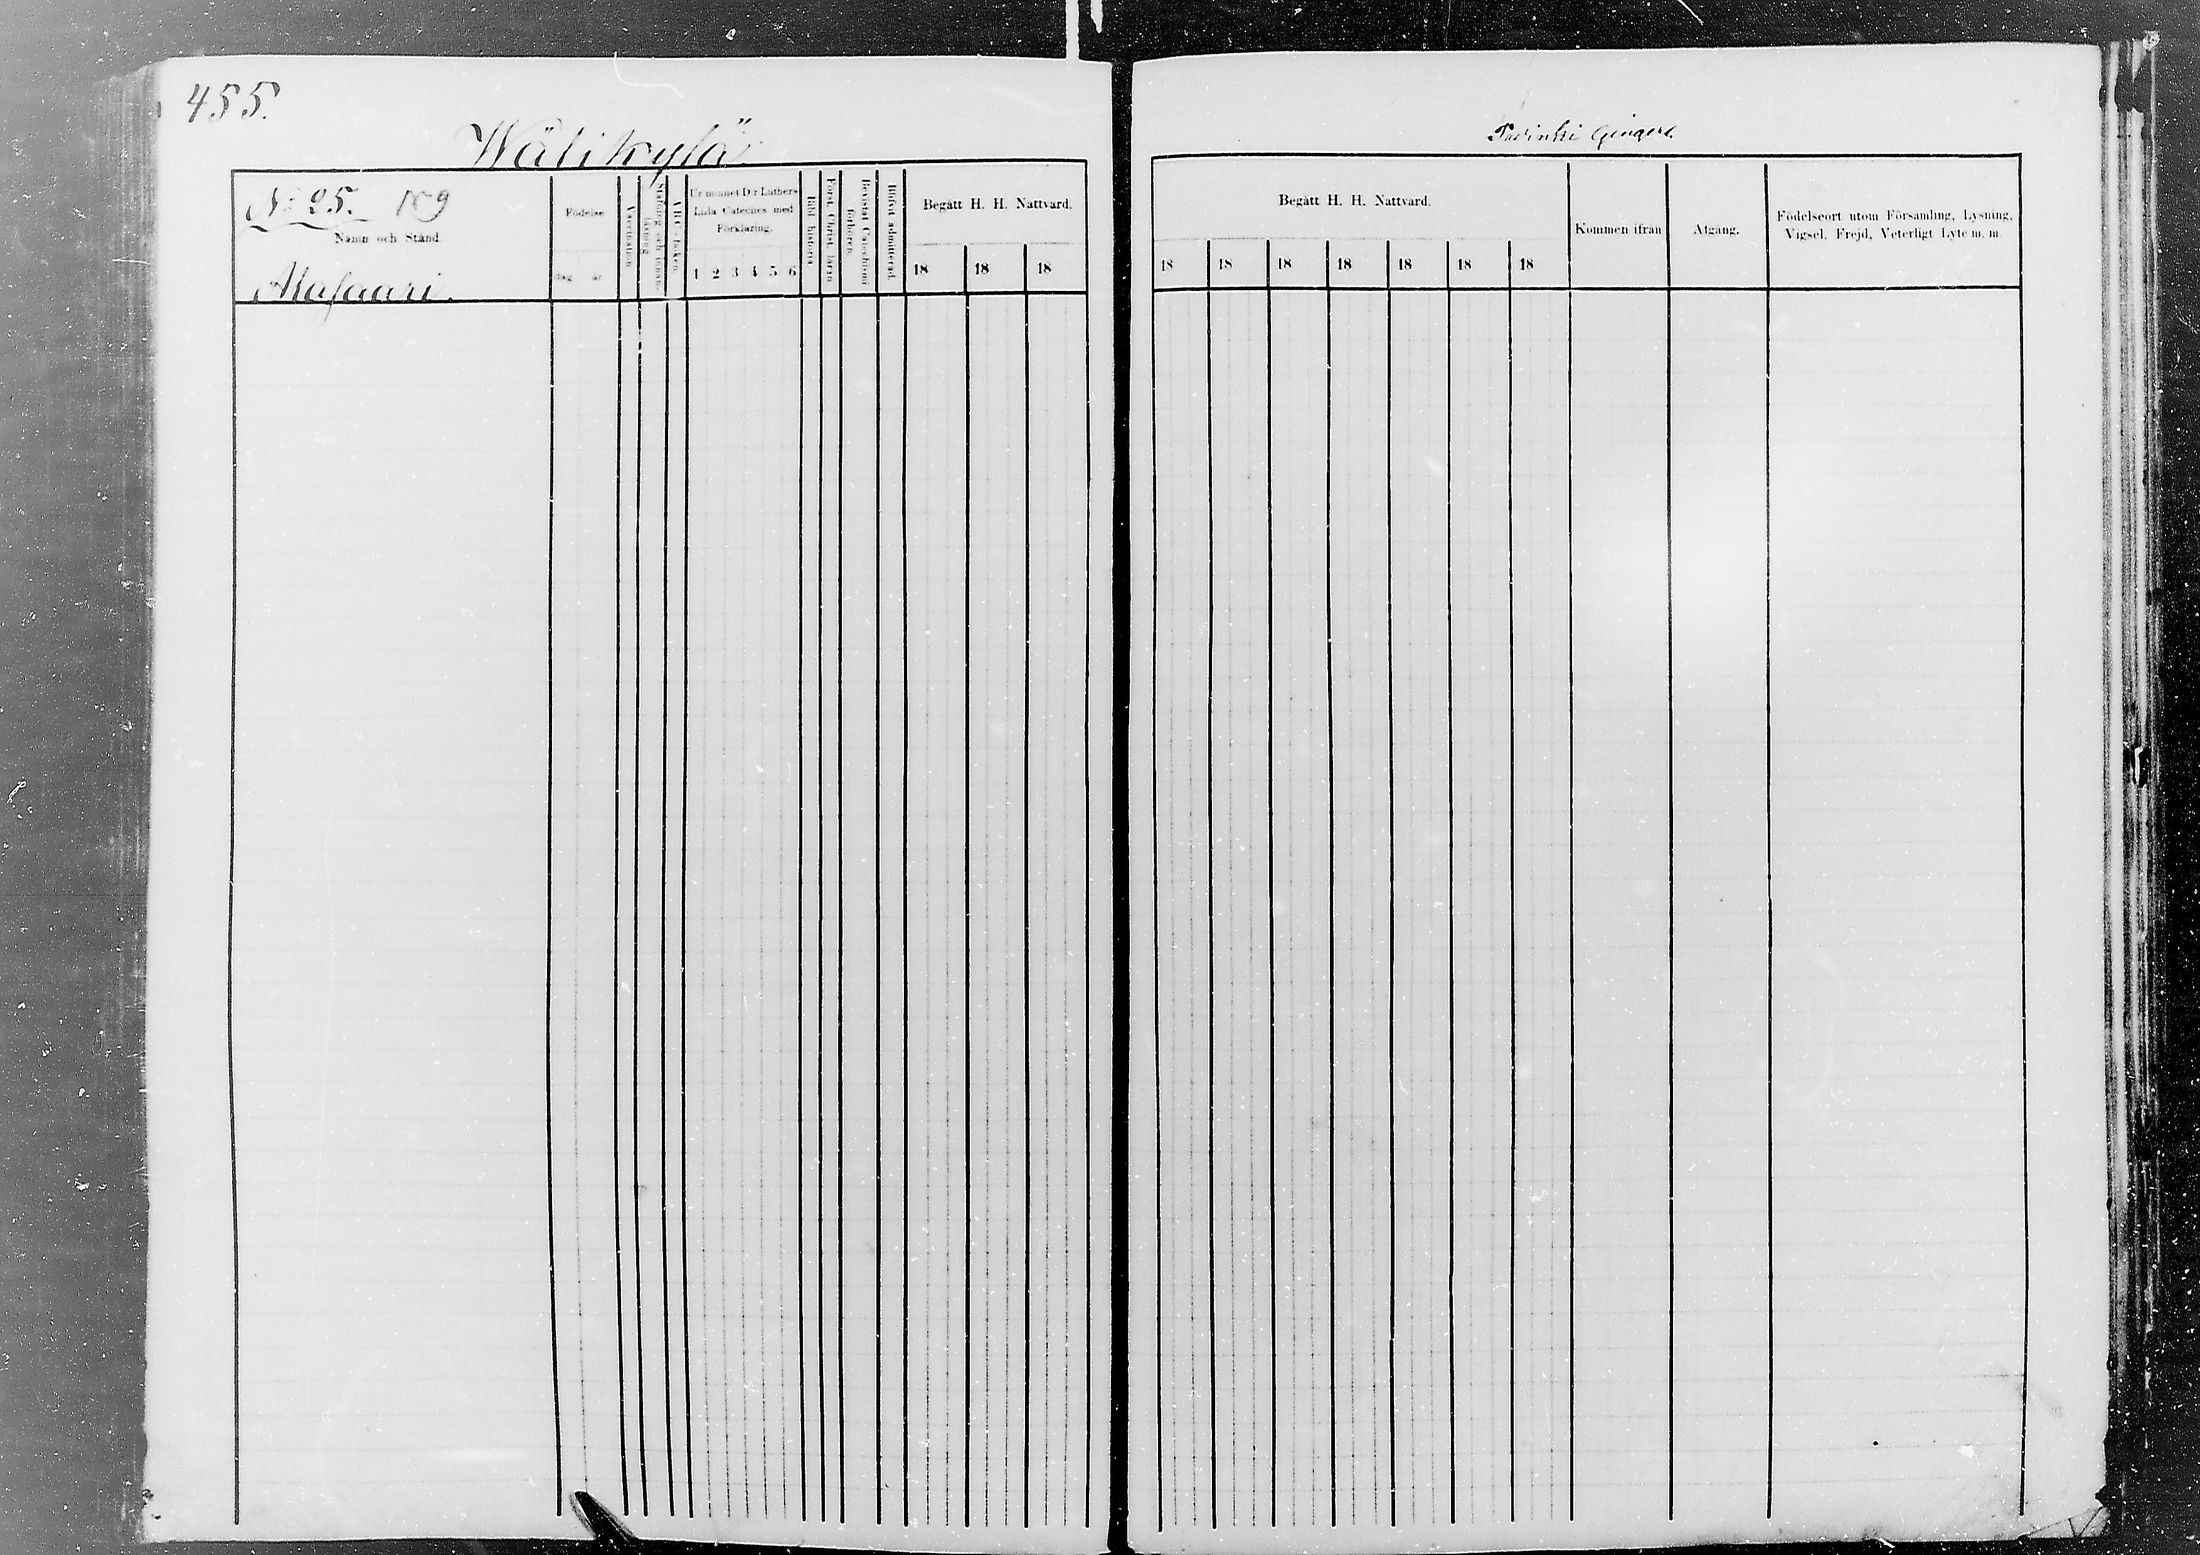 455.
Wälikylä
No 25. 109
Namn och Stånd
Alasaari.
Födelse
dag. år.
Vaccination
Stafning och innan-
läsning
ABC-boken
Ur minnet D:r Luthers
Lilla Cateches med
Förklaring.
1 2 3 4 5 6
Bibl. historia
Först. Christ. läran
Bevistat Catechismi
förhören.
Blifvit admitterad.
Begått H. H. Nattvard.
18 18 18
Begått H. H. Nattvard.
18 18 18 18 18 18 18
Kommen ifrån
Afgång.
Födelseort utom Församling, Lysning,
Vigsel, Frejd, Veterligt Lyte m. m.